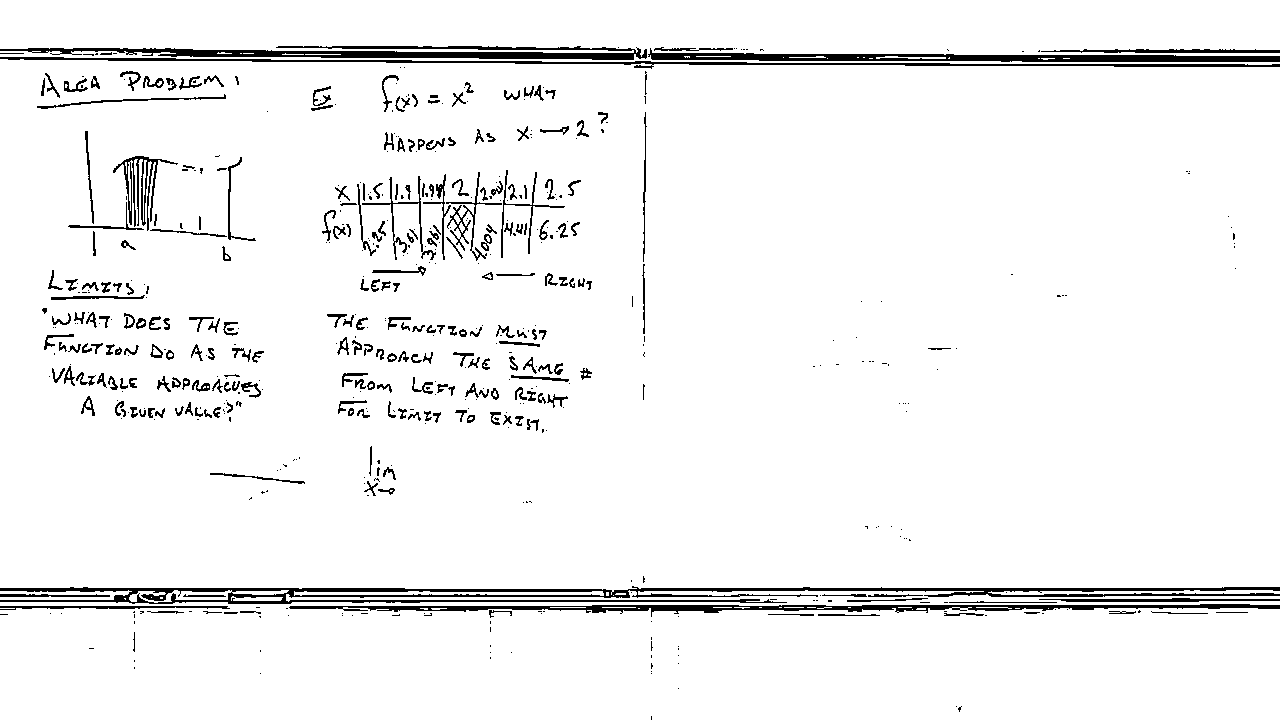 AREA PROBLEM:
a
b
LIMITS:
"WHAT DOES THE
FUNCTION DO AS THE
VARIABLE APPROACHES
A GIVEN VALUE?"
Ex f(x) = x² WHAT
HAPPENS AS x → 2?
x 1.5 1.9 1.99 2 2.001 2.1 2.5
f(x) 2.25 3.61 3.961 4.004 4.41 6.25
LEFT RIGHT
THE FUNCTION MUST
APPROACH THE SAME #
FROM LEFT AND RIGHT
FOR LIMIT TO EXIST.
lim
x→